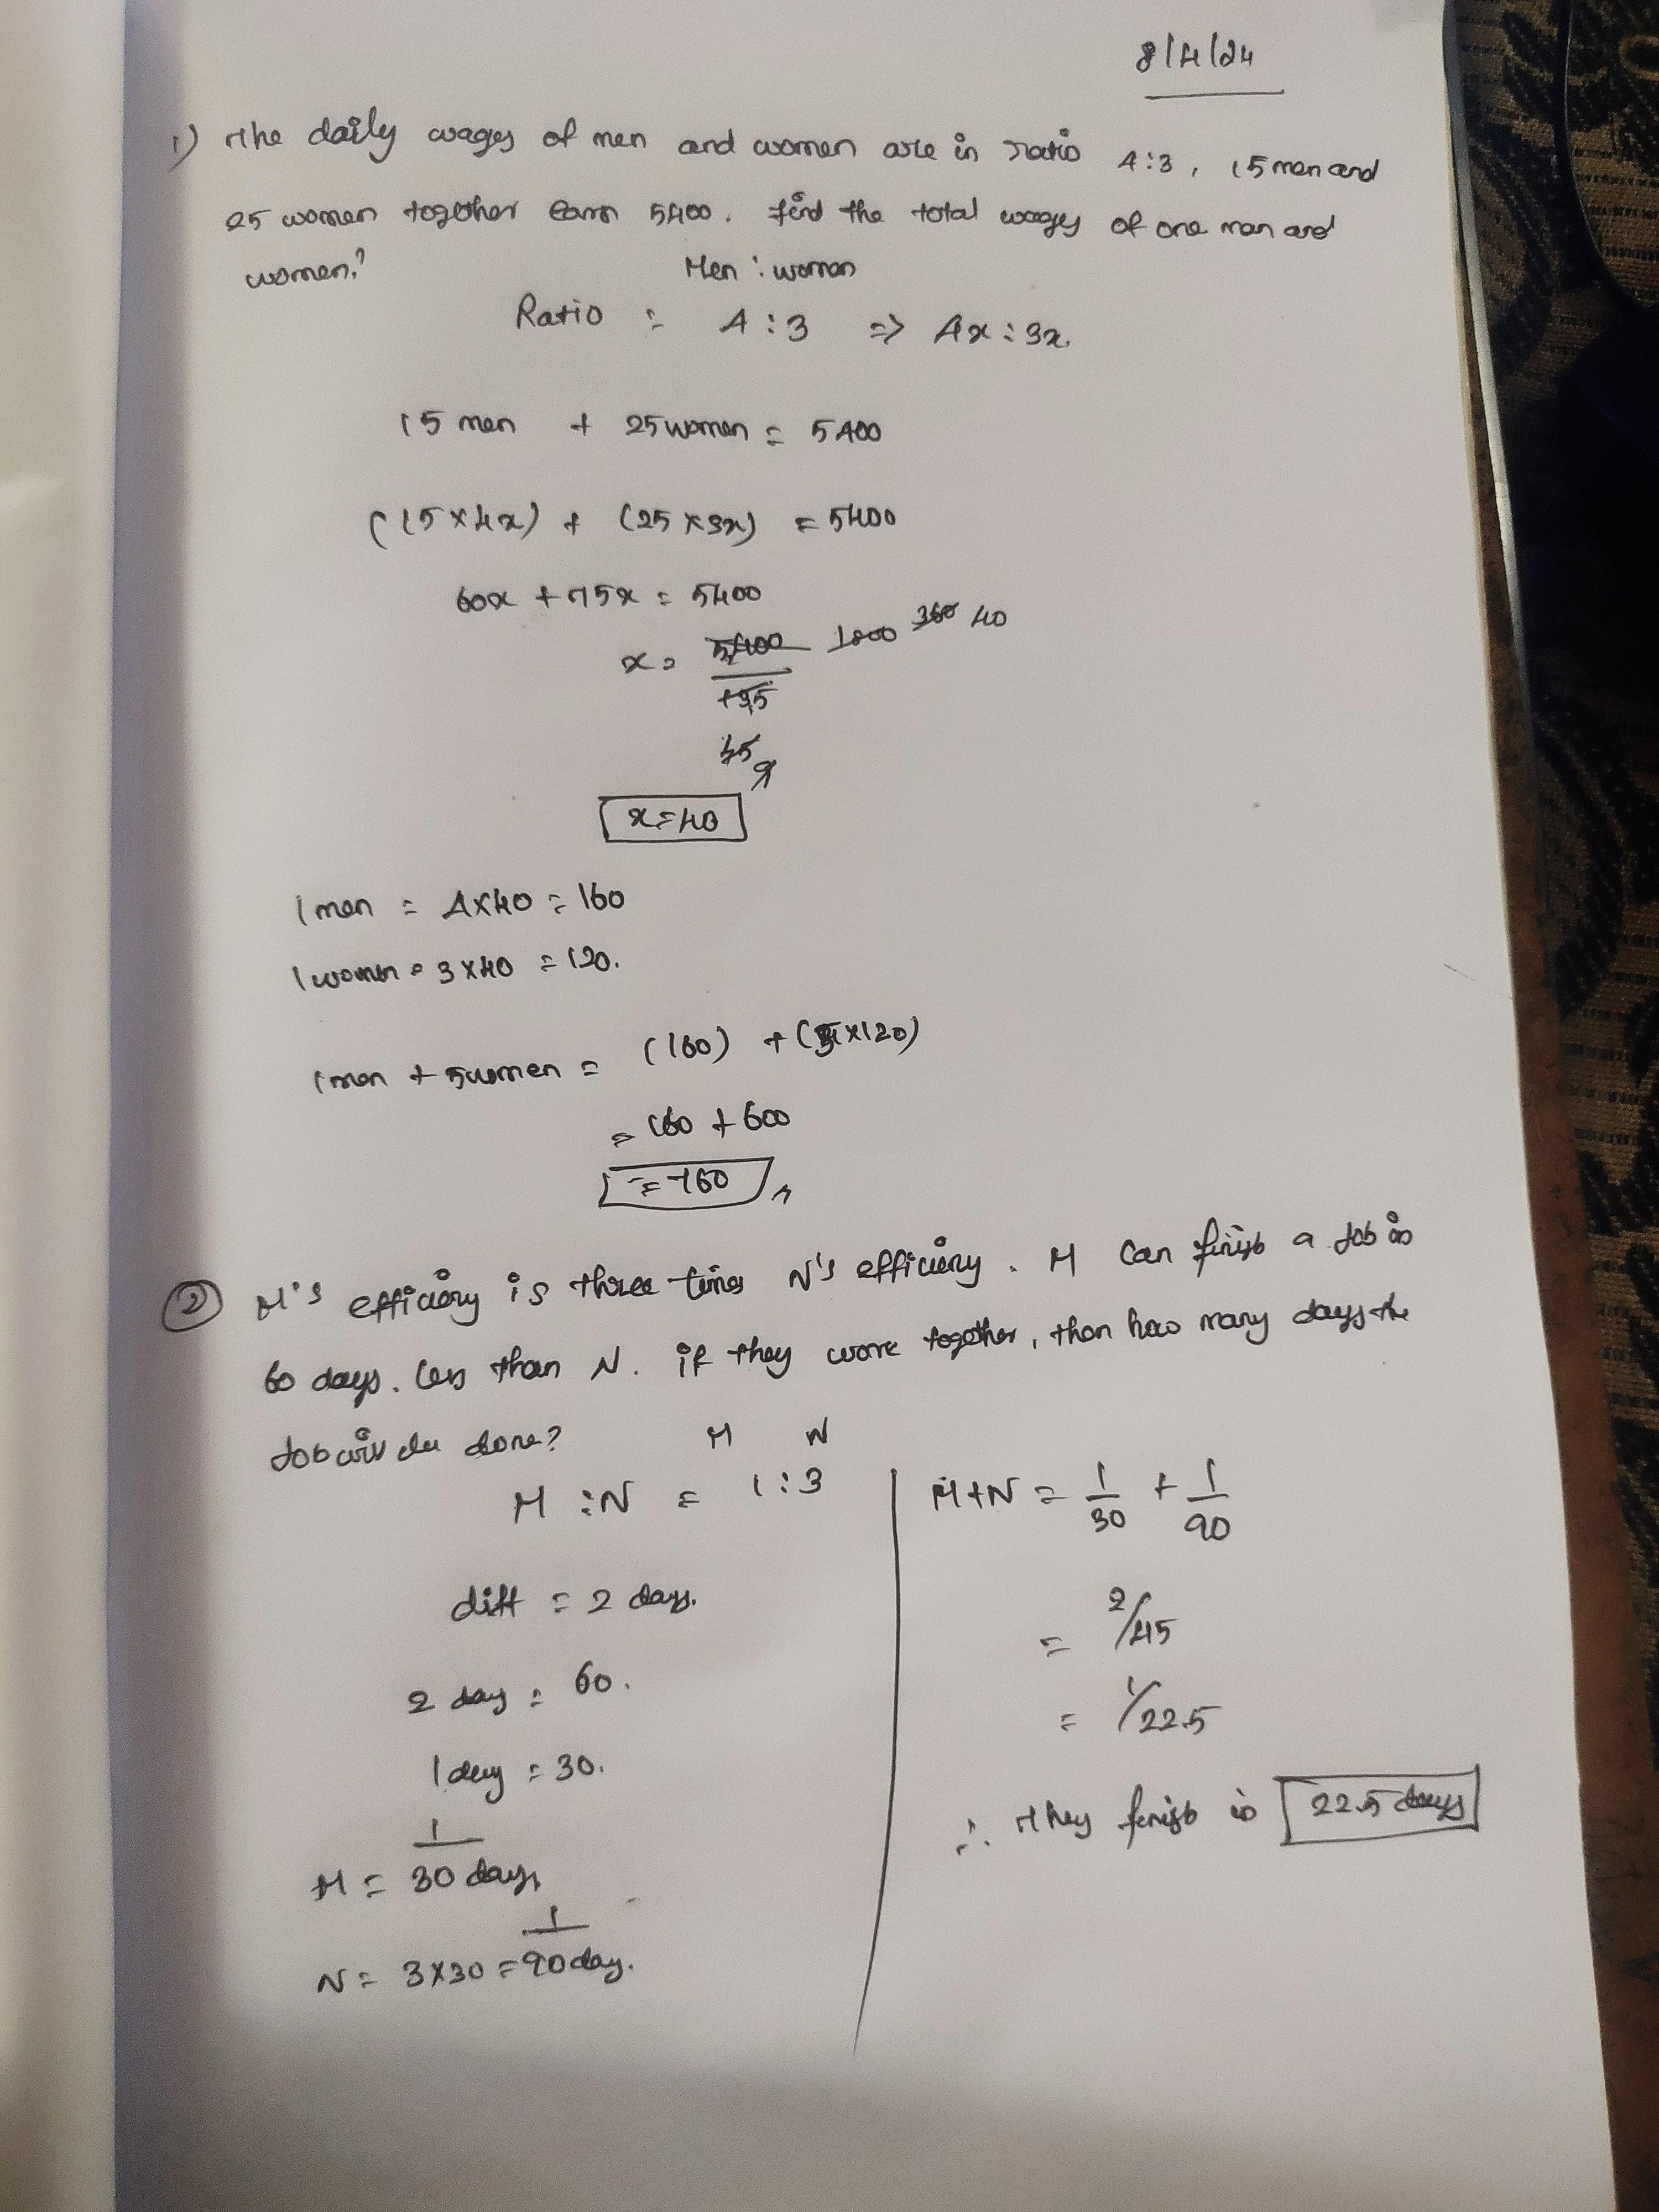 8/4/24
1) The daily wages of men and women are in ratio 4:3, 15 men and
25 women together earn 5400. find the total wages of one man and
women.?
Men : women
Ratio = 4 : 3 => 4x : 3x
15 men + 25 women = 5400
(15 x 4x) + (25 x 3x) = 5400
60x + 75x = 5400
x = 5400 1800 360 40
135
45 9
x = 40
1 men = 4x40 = 160
1 women = 3x40 = 120.
1 men + 5 women = (160) + (5x120)
= 160 + 600
= 760
2) M's efficiency is three times N's efficiency. M can finish a job in
60 days. less than N. if they work together, than how many days the
Job will be done?
M N
M : N = 1 : 3
diff = 2 days.
2 day = 60.
1 day = 30.
M = 1/30 days
N = 3x30 = 1/90 day.
M+N = 1/30 + 1/90
= 2/45
= 1/22.5
∴ they finish in 22.5 days